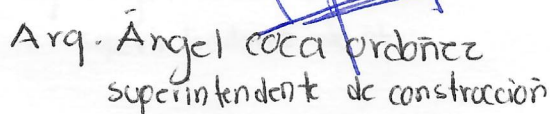 Arq. Ángel coca ordoñez
superintendente de construcción